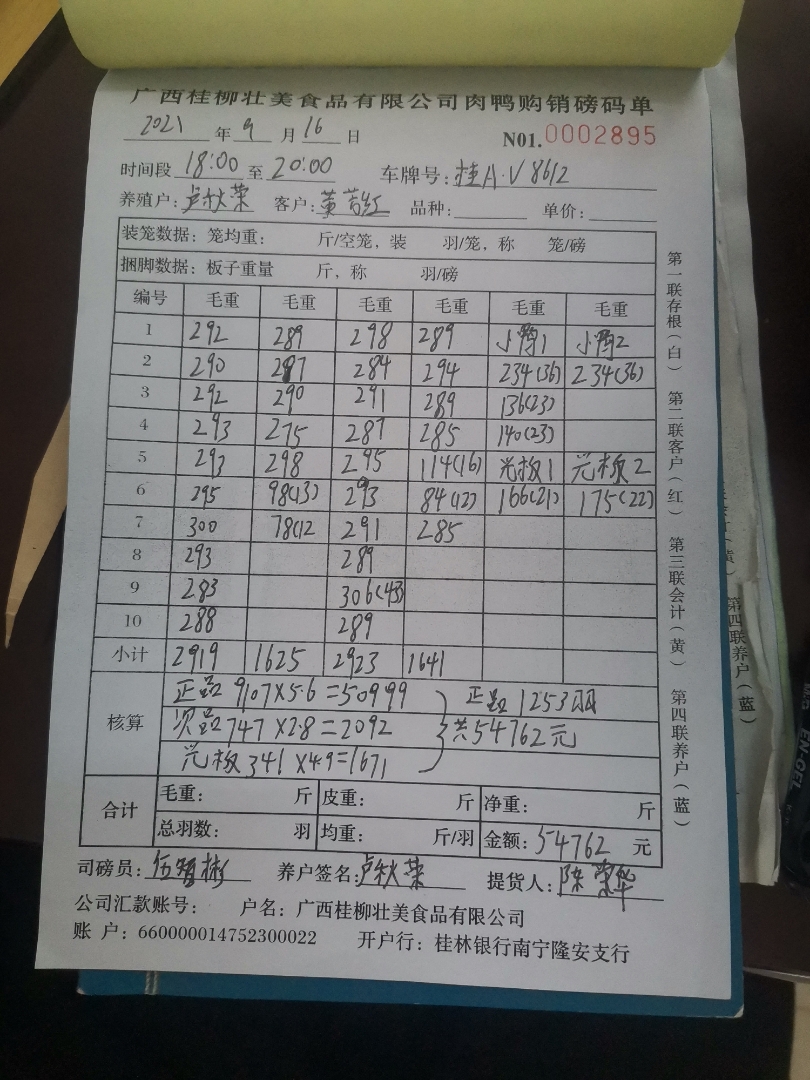 广西桂柳壮美食品有限公司肉鸭购销磅码单
2021 年 9 月 16 日 N01.0002895
时间段 18:00 至 20:00 车牌号: 桂A·V8612
养殖户: 卢秋荣 客户: 黄 红 品种: 单价:
装笼数据: 笼均重: 斤/空笼, 装 羽/笼, 称 笼/磅
捆脚数据: 板子重量 斤, 称 羽/磅
编号 毛重 毛重 毛重 毛重 毛重 毛重
1 292 289 298 289 小鸭1 小鸭2
2 290 287 284 294 234(36) 234(36)
3 292 290 291 289 136(23)
4 293 275 287 285 140(23)
5 293 298 295 114(16) 光板1 光板2
6 295 98(13) 293 84(12) 166(21) 175(22)
7 300 78(12 291 285
8 293 289
9 283 306(43)
10 288 289
小计 2919 1625 2923 1641
核算 正品 9107×5.6=50999 正品1253羽
次品747×2.8=2092 共54762元
光板341×4.9=1671
合计 毛重: 斤 皮重: 斤 净重: 斤
总羽数: 羽 均重: 斤/羽 金额: 54762 元
司磅员: 伍 彬 养户签名: 卢秋荣 提货人: 陈荣华
公司汇款账号: 户名: 广西桂柳壮美食品有限公司
账 户: 660000014752300022 开户行: 桂林银行南宁隆安支行
第一联存根(白) 第二联客户(红) 第三联会计(黄) 第四联养户(蓝)
第四联养户(蓝)
EN-GEL